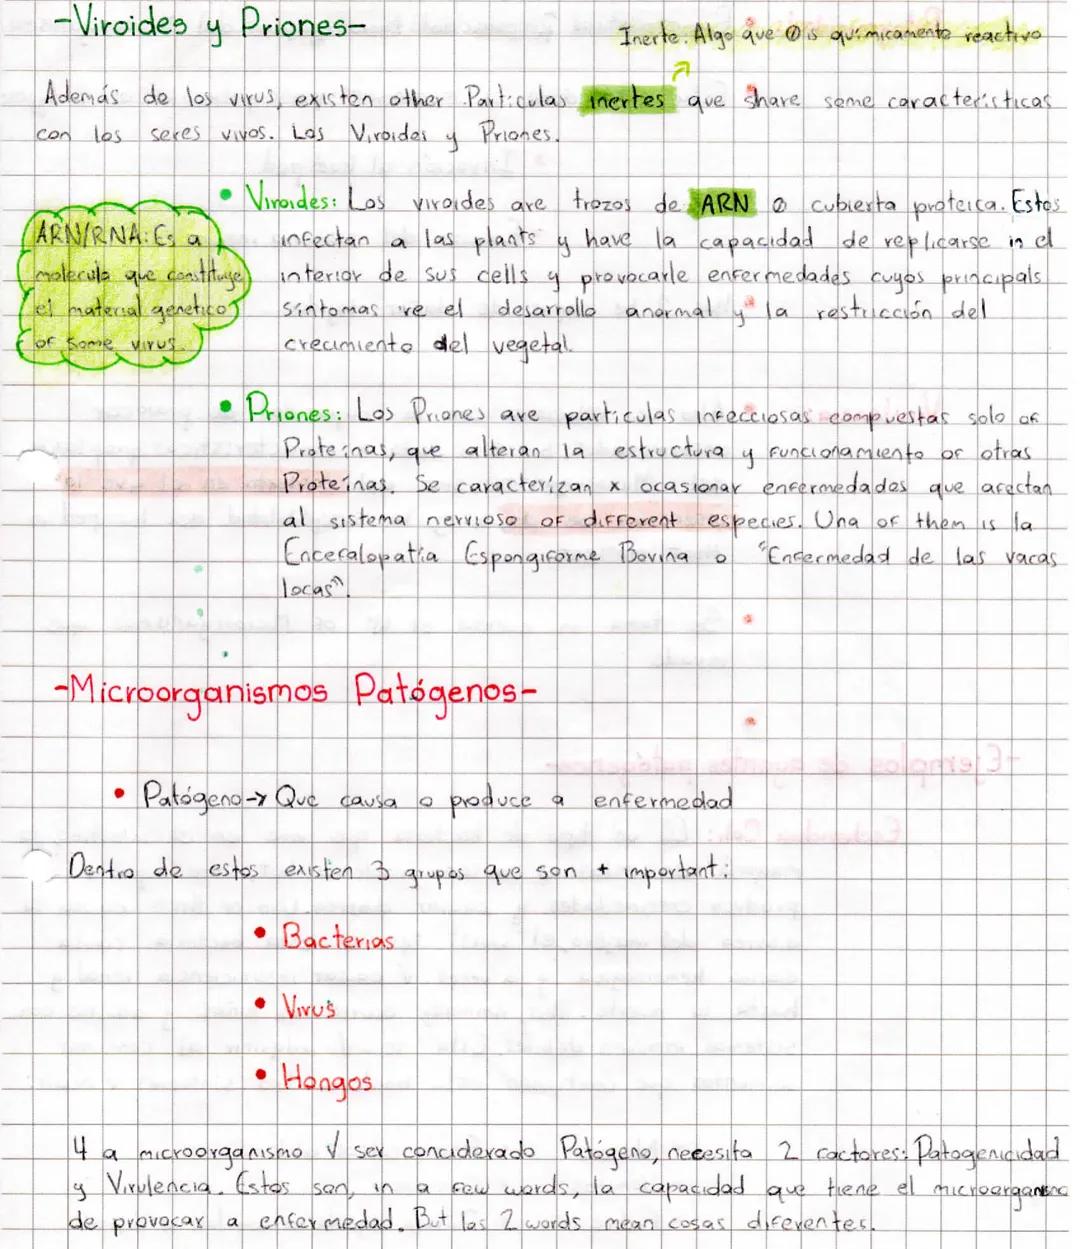 -Viroides y Priones-
Inerte: Algo que Ø is químicamente reactivo
Además de los virus, existen other Partículas inertes que share some características
con los seres vivos. Los Viroides y Priones.
• Viroides: Los viroides are trozos de ARN Ø cubierta proteica. Estos
infectan a las plants y have la capacidad de replicarse in el
interior de sus cells y provocarle enfermedades cuyos principals
síntomas re el desarrollo anormal y la restricción del
crecimiento del vegetal.
ARN/RNA: Es a
molecula que constituye
el material genetico
of some virus.
• Priones: Los Priones are partículas infecciosas compuestas solo of
Proteínas, que alteran la estructura y funcionamiento of otras
Proteínas. Se caracterizan x ocasionar enfermedades que afectan
al sistema nervioso of different especies. Una of them is la
Encefalopatía Espongiforme Bovina o "Enfermedad de las vacas
locas".
-Microorganismos Patógenos-
• Patógeno→ Que causa o produce a enfermedad
Dentro de estos existen 3 grupos que son + important:
• Bacterias
• Virus
• Hongos
4 a microorganismo √ ser conciderado Patógeno, necesita 2 factores: Patogenicidad
y Virulencia. Estos son, in a few words, la capacidad que tiene el microorganismo
de provocar a enfermedad. But las 2 words mean cosas diferentes.